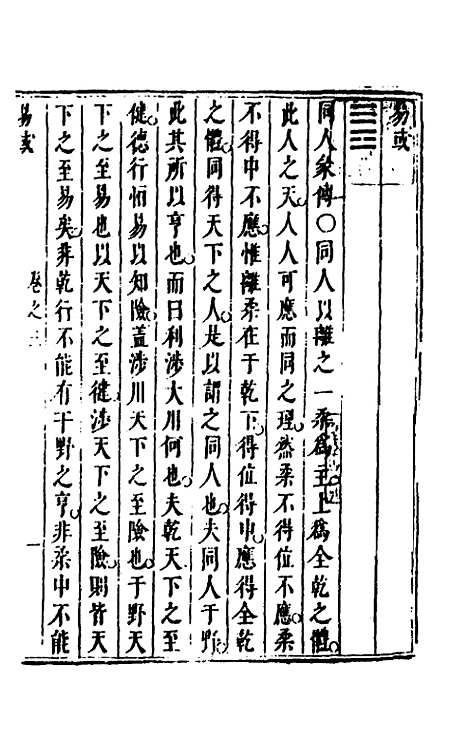 易或
同人彖傳○同人以離之一柔爲主上爲全乾之體
此人之天人人可應而同之理然柔不得位不應柔
不得中不應惟離柔在于乾下得位得中應得全乾
之體同得天下之人是以謂之同人也夫同人于野
此其所以亨也而曰利涉大川何也夫乾天下之至
健德行恒易以知險蓋涉川天下之至險也于野天
下之至易也以天下之至健涉天下之至險則皆天
下之至易矣非乾行不能有于野之亨非柔中不能
易或 卷之三 一